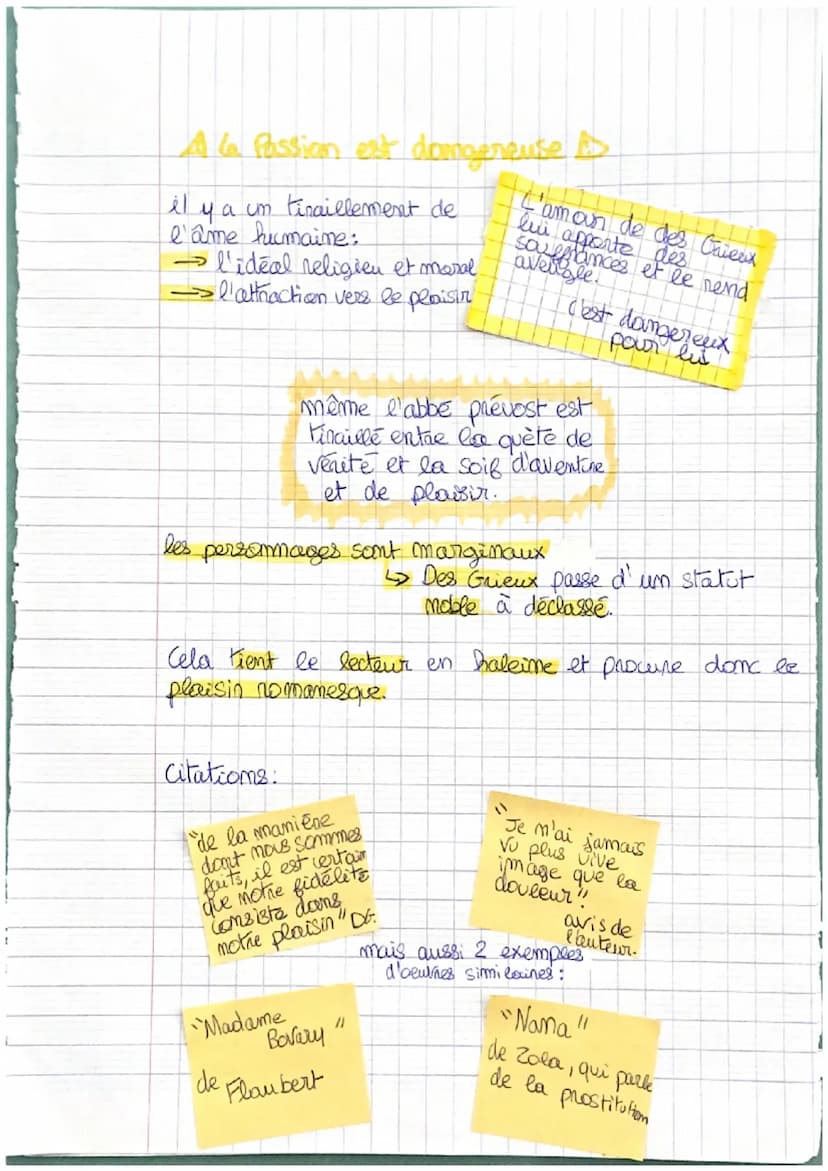 ⚠ la Passion est dangereuse ⚠
il y a un tiraillement de
l'âme humaine:
→ l'idéal religieu et moral
→ l'attraction vers le plaisir
L'amour de des Grieux
lui apporte des
souffrances et le rend
aveugle.
c'est dangereux
pour lui
même l'abbé prévost est
tiraillé entre la quète de
vérité et la soif d'aventure
et de plaisir.
les personnages sont marginaux
↳ Des Grieux passe d'un statut
noble à déclassé.
Cela tient le lecteur en haleine et procure donc le
plaisir romanesque.
Citations:
"de la manière
dont nous sommes
faits, il est certain
que notre fidélité
consiste dans
notre plaisir" DG.
"Je n'ai jamais
vu plus vive
image que la
douleur"
avis de
l'auteur.
mais aussi 2 exemples
d'oeuvres similaires:
"Madame
Bovary"
de Flaubert
"Nana"
de Zola, qui parle
de la prostitution